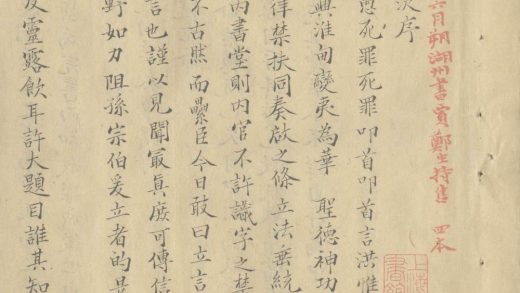 月朔湖州書賓鄭生持售 四本
序
死罪死罪叩首叩首言洪惟
興淮甸變夷為華 聖德神功
律禁扶同奏啟之條立法垂統
內書堂則內官不許識字之禁
不古然而纍臣今日敢曰立言
言也謹以見聞最真庶可傳信
野如力阻孫宗伯爰立者的是
靈露飲耳許大題目誰其知